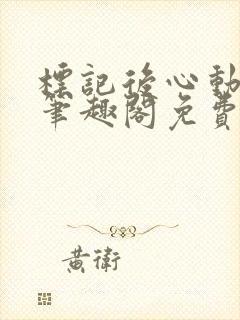 標記後心動
筆趣閣免費
黃衛